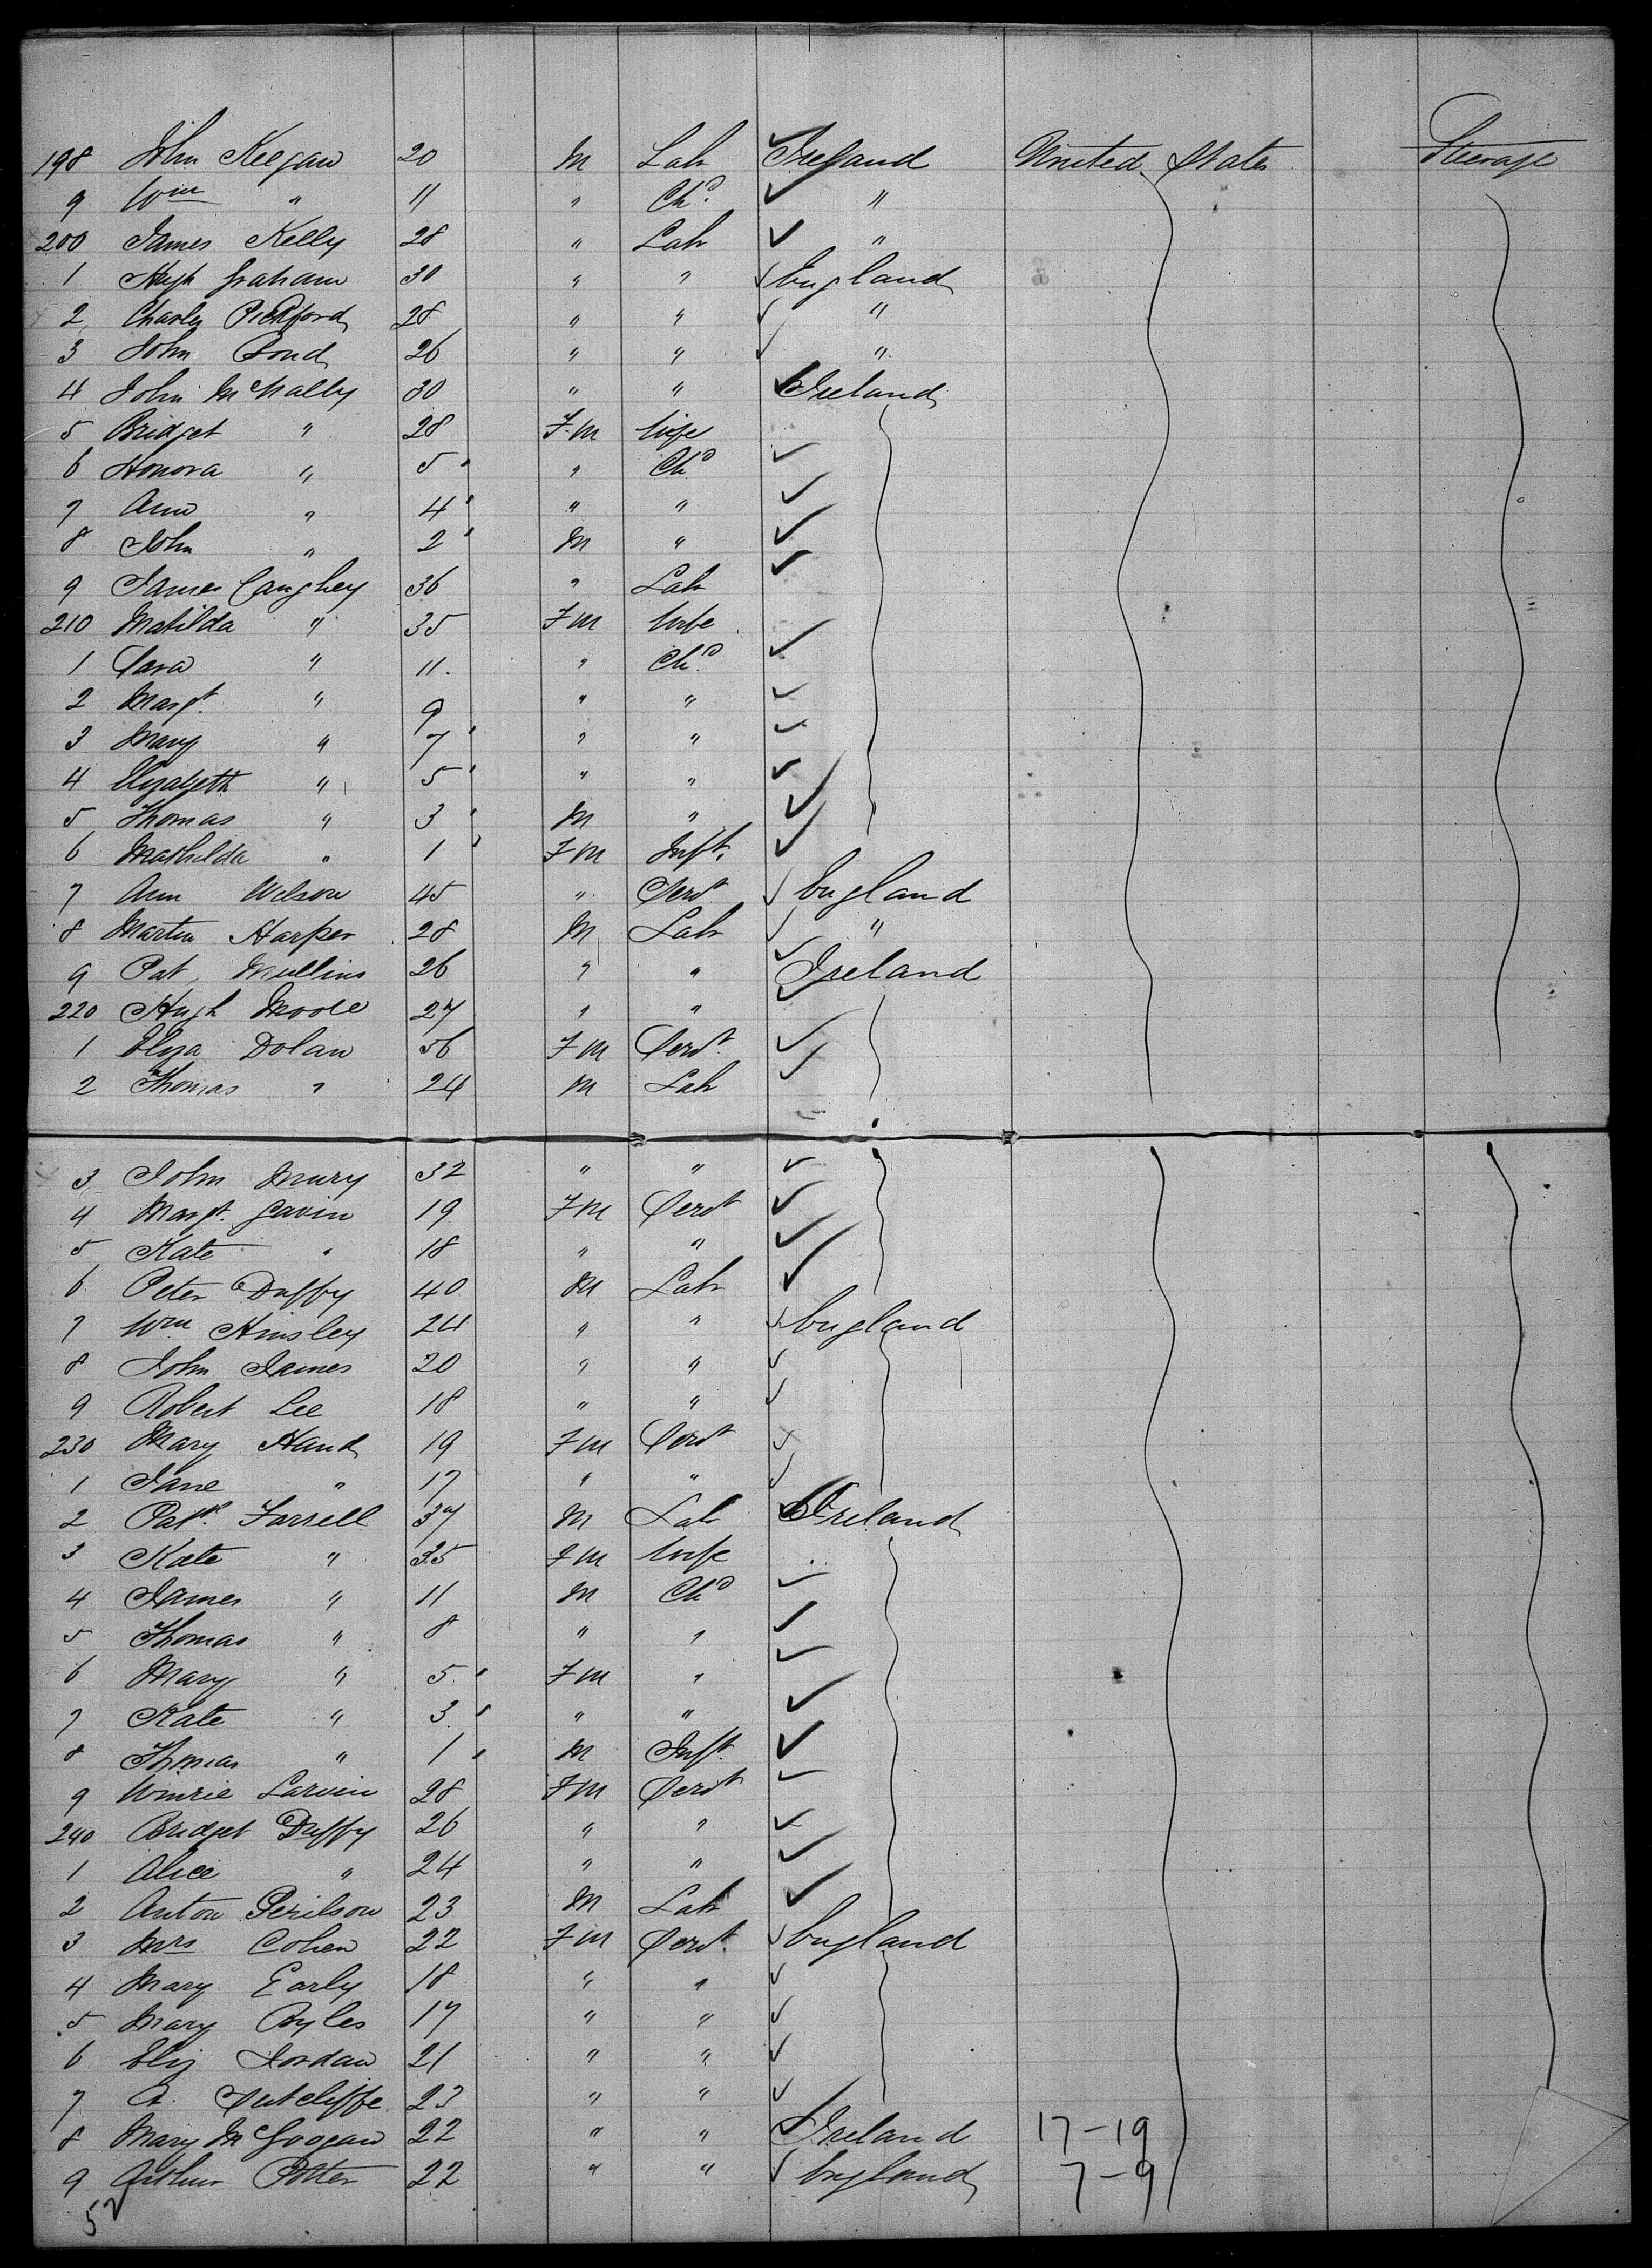 198 John Keegan 20 M Lab Ireland United States Steerage
9 Wm " 11 " Chd "
200 James Kelly 28 " Lab "
1 Hugh Graham 30 " " England
2 Charles Pickford 28 " " "
3 John Bond 26 " " "
4 John McNally 30 " " Ireland
5 Bridget " 28 Fm Wife
6 Honora " 5 " Chd
7 Ann " 4 " "
8 John " 2 M "
9 James Caughey 36 " Lab
210 Matilda " 35 Fm Wife
1 Sara " 11. " Chd
2 Margt. " 9 " "
3 Mary " 7 " "
4 Elizabeth " 5 " "
5 Thomas " 3 M "
6 Mathilda " 1 Fm Inft.
7 Ann Wilson 45 " Servt England
8 Martin Harper 28 M Lab "
9 Pat Mullins 26 " " Ireland
220 Hugh Moore 27 " "
1 Eliza Dolan 56 Fm Servt.
2 Thomas " 24 M Lab
3 John Mury 32 " "
4 Margt. Gavin 19 Fm Servt
5 Kate " 18 " "
6 Peter Duffy 40 M Lab
7 Wm Ainsley 24 " " England
8 John James 20 " "
9 Robert Lee 18 " "
230 Mary Hand 19 Fm Servt
1 Jane " 17 " "
2 Patk. Farrell 37 M Lab Ireland
3 Kate " 35 Fm Wife
4 James " 11 M Chd
5 Thomas " 8 " "
6 Mary " 5 Fm "
7 Kate " 3 " "
8 Thomas " 1 M Inft.
9 Winnie Larvin 28 Fm Servt
240 Bridget Duffy 26 " "
1 Alice " 24 " "
2 Anton 23 M Lab
3 Mrs Cohen 22 Fm Servt. England
4 Mary Early 18 " "
5 Mary Byles 17 " "
6 Eliz Jordan 21 " "
7 A. Sutcliffe 23 " "
8 Mary McGoogan 22 " " Ireland 17-19
9 Arthur Potter 22 " " England 7-9
52